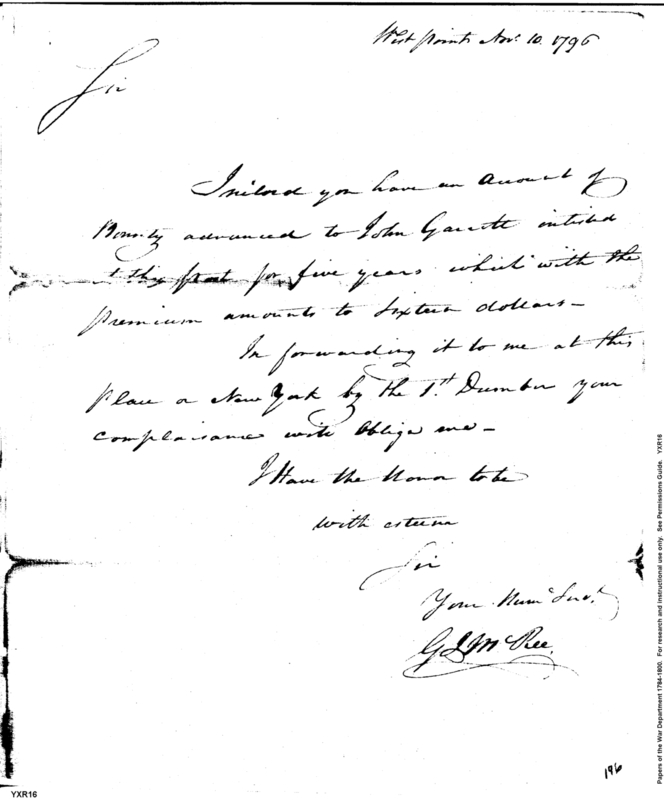 West point Nov. 10. 1796
Sir
Inclosed you have an Account of
Bounty advanced to John Garrett inlisted
at this post for five years which with the
premium amounts to Sixteen dollars—
In forwarding it to me at this
place or New York by the 1st. December your
complaisance will Oblige me—
I Have the Honor to be
with esteem
Sir
Your Humc Servt.
G J McRee.
196
YXR16
Papers of the War Department 1784-1800. For research and instructional use only. See Permissions Guide. YXR16